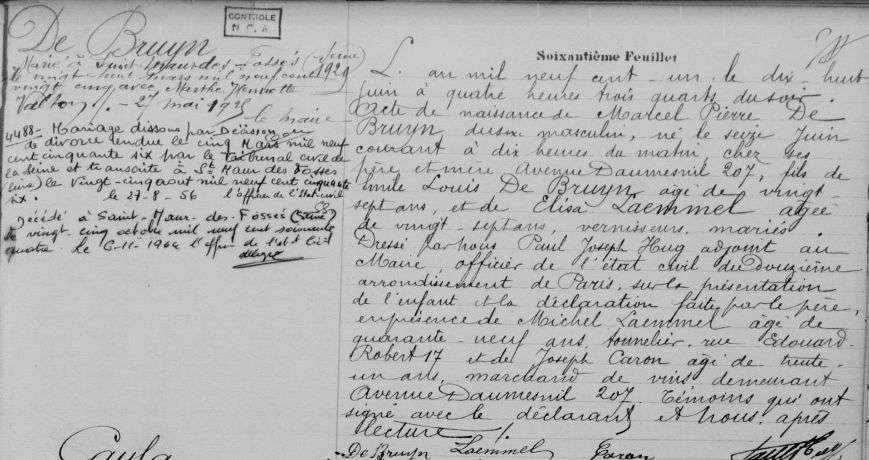 De Bruyn
CONTRÔLE
N.C.A
Marié à Saint Maur des Fossés (Seine)
le vingt huit mars mil neuf cent
1929
vingt cinq avec Marthe Henriette
27 mai 19
le maire
4488 - Mariage dissous par Décision
de divorce rendue le cinq Mars mil neuf
cent cinquante six par le tribunal civil de
la Seine et transcrite à St Maur des Fossés
le vingt-cinq aout mil neuf cent cinquante
six. le 27-8-56 l'officier de l'état civil
Décédé à Saint-Maur-des-Fossés (Seine)
le vingt cinq octobre mil neuf cent soixante
quatre. le 6-11-1964 l'offr de l'état civil
délégué
Soixantième Feuillet
L'an mil neuf cent un le dix-huit
juin à quatre heures trois quarts du soir.
Acte de naissance de Marcel Pierre De
Bruyn du sexe masculin, né le seize Juin
courant à dix heures du matin, chez ses
père et mère Avenue Daumesnil 207, fils de
Emile Louis De Bruyn âgé de vingt
sept ans, et de Elisa Laemmel âgée
de vingt-sept ans, vernisseurs, mariés.
Dressé par nous Paul Joseph Hug adjoint au
Maire, officier de l'état civil du Douzième
arrondissement de Paris, sur la présentation
de l'enfant et la déclaration faite par le père,
en présence de Michel Laemmel âgé de
quarante-neuf ans, tonnelier, rue Edouard-
Robert 17 et de Joseph Caron âgé de trente-
un ans, marchand de vins demeurant
Avenue Daumesnil 207. Témoins qui ont
signé avec le déclarant et nous après
lecture.
De Bruyn Laemmel Caron Paul Hug